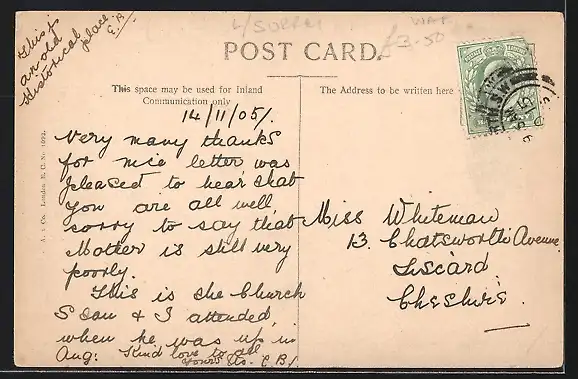 This is
an old
Historical
place.
E.B.
L/SURREY
WAR
£3-50
POST CARD.
This space may be used for Inland
Communication only
The Address to be written here
14/11/05/.
Very many thanks
for nice letter was
pleased to hear that
you are all well
sorry to say that
Mother is still very
poorly.
This is the Church
Stan & I attended
when he was up in
Aug: Kind love to all
Yours As. E.B/.
Miss Whiteman
13. Chatsworth Avenue
Liscard.
Cheshire.
London E.C. No